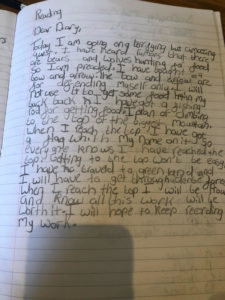 Reading
Dear Diary,
Today I am going on a amazing
quest. I have heard that there
are bears and wolves hunting for food
So I am prepared I have bought a
bow and arrow. The bow and arrow are
for defending myself only. I will
not use it to get some food in my
back pack I have got a fishing
rod for getting food. I plan of climbing
to the top of the biggest mountain.
When I reach the top I have got
a flag with My Name on it so
everyone knows I have reached the
top. Getting to the top won't be easy
I have to travel to green land and
I will have to get through dense
When I reach the top I will be
and know all this work will be
Worth it. I will hope to keep recording
My work.